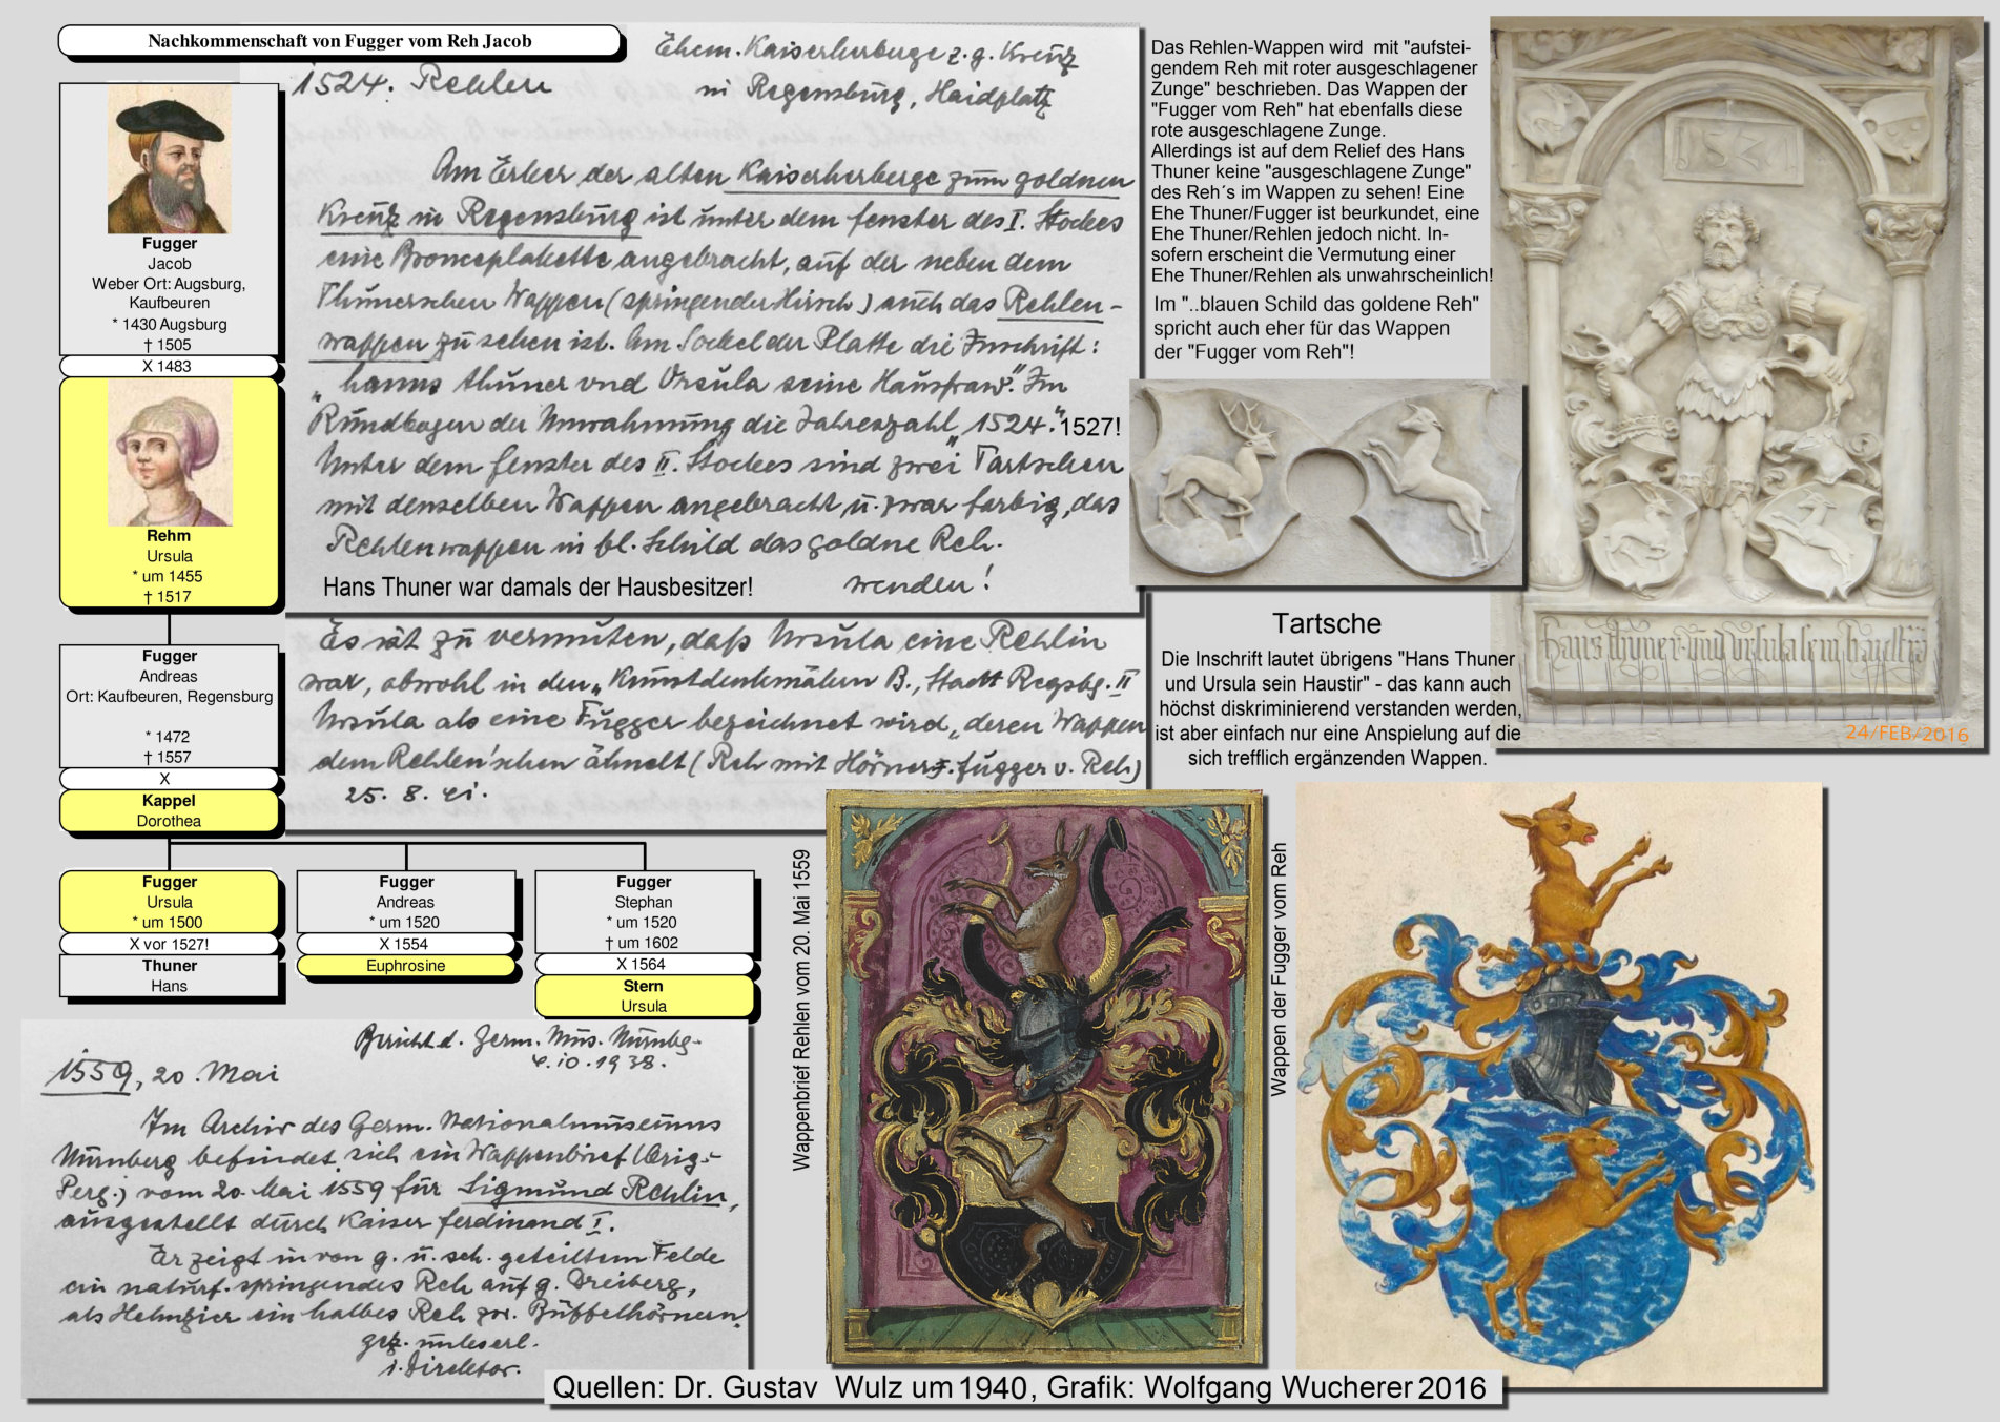 Nachkommenschaft von Fugger vom Reh Jacob
Fugger
Jacob
Weber Ort: Augsburg,
Kaufbeuren
* 1430 Augsburg
† 1505
X 1483
Rehm
Ursula
* um 1455
† 1517
Fugger
Andreas
Ort: Kaufbeuren, Regensburg
* 1472
† 1557
X
Kappel
Dorothea
Fugger
Ursula
* um 1500
X vor 1527!
Thuner
Hans
Fugger
Andreas
* um 1520
X 1554
Euphrosine
Fugger
Stephan
* um 1520
† um 1602
X 1564
Stern
Ursula
1524. Rehlen
Ehem. Kaiserherberge z. g. Kreuz
in Regensburg, Haidplatz
Am Erker der alten Kaiserherberge zum goldnen
Kreuz in Regensburg ist unter dem Fenster des I. Stockes
eine Bronceplakette angebracht, auf der neben dem
Thunerschen Wappen (springender Hirsch) auch das Rehlen-
wappen zu sehen ist. Am Sockel der Platte die Inschrift:
"hanns thuner vnd Ursula seine Hausfraw." Im
Rundbogen der Umrahmung die Jahreszahl "1524." 1527!
Unter dem Fenster des II. Stockes sind zwei Tartschen
mit denselben Wappen angebracht u. zwar farbig, das
Rehlenwappen in bl. Schild das goldne Reh.
Hans Thuner war damals der Hausbesitzer!
wenden!
Es ist zu vermuten, daß Ursula eine Rehlin
war, obwohl in den "Kunstdenkmälern B., Stadt Regsbg. II
Ursula als eine Fugger bezeichnet wird, deren Wappen
dem Rehlen'schen ähnelt (Reh mit Hörner Fugger v. Reh)
25. 8. 41.
Das Rehlen-Wappen wird mit "aufstei-
gendem Reh mit roter ausgeschlagener
Zunge" beschrieben. Das Wappen der
"Fugger vom Reh" hat ebenfalls diese
rote ausgeschlagene Zunge.
Allerdings ist auf dem Relief des Hans
Thuner keine "ausgeschlagene Zunge"
des Reh´s im Wappen zu sehen! Eine
Ehe Thuner/Fugger ist beurkundet, eine
Ehe Thuner/Rehlen jedoch nicht. In-
sofern erscheint die Vermutung einer
Ehe Thuner/Rehlen als unwahrscheinlich!
Im "..blauen Schild das goldene Reh"
spricht auch eher für das Wappen
der "Fugger vom Reh"!
Tartsche
Die Inschrift lautet übrigens "Hans Thuner
und Ursula sein Haustir" - das kann auch
höchst diskriminierend verstanden werden,
ist aber einfach nur eine Anspielung auf die
sich trefflich ergänzenden Wappen.
hans thuner und ursula sein haustir
24/FEB/2016
Bericht d. Germ. Mus. Nürnbg.
4.10.1938.
1559, 20. Mai
Im Archiv des Germ. Nationalmuseums
Nürnberg befindet sich ein Wappenbrief (Orig.-
Perg.) vom 20. Mai 1559 für Sigmund Rehlin,
ausgestellt durch Kaiser Ferdinand I.
Er zeigt in von g. u. sch. geteiltem Felde
ein naturf. springendes Reh auf g. Dreiberg,
als Helmzier ein halbes Reh zw. Büffelhörnern.
gez. unleserl.
i. Direktor.
Wappenbrief Rehlen vom 20. Mai 1559
Wappen der Fugger vom Reh
Quellen: Dr. Gustav Wulz um 1940, Grafik: Wolfgang Wucherer 2016